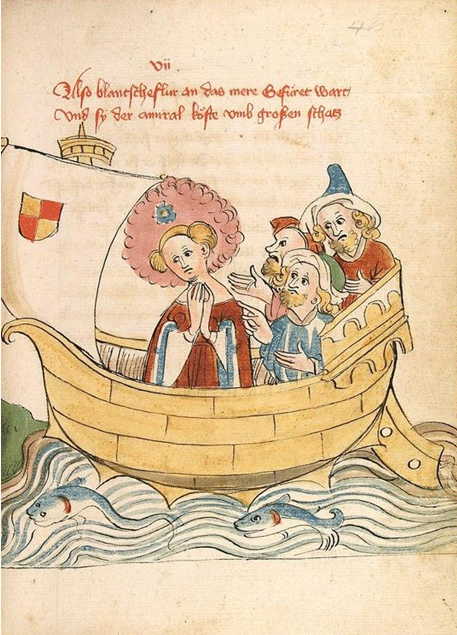 vii
Alß blantscheflur an das mere Gefüret wart/
Vnd sy der amiral köfte vmb großen schatz